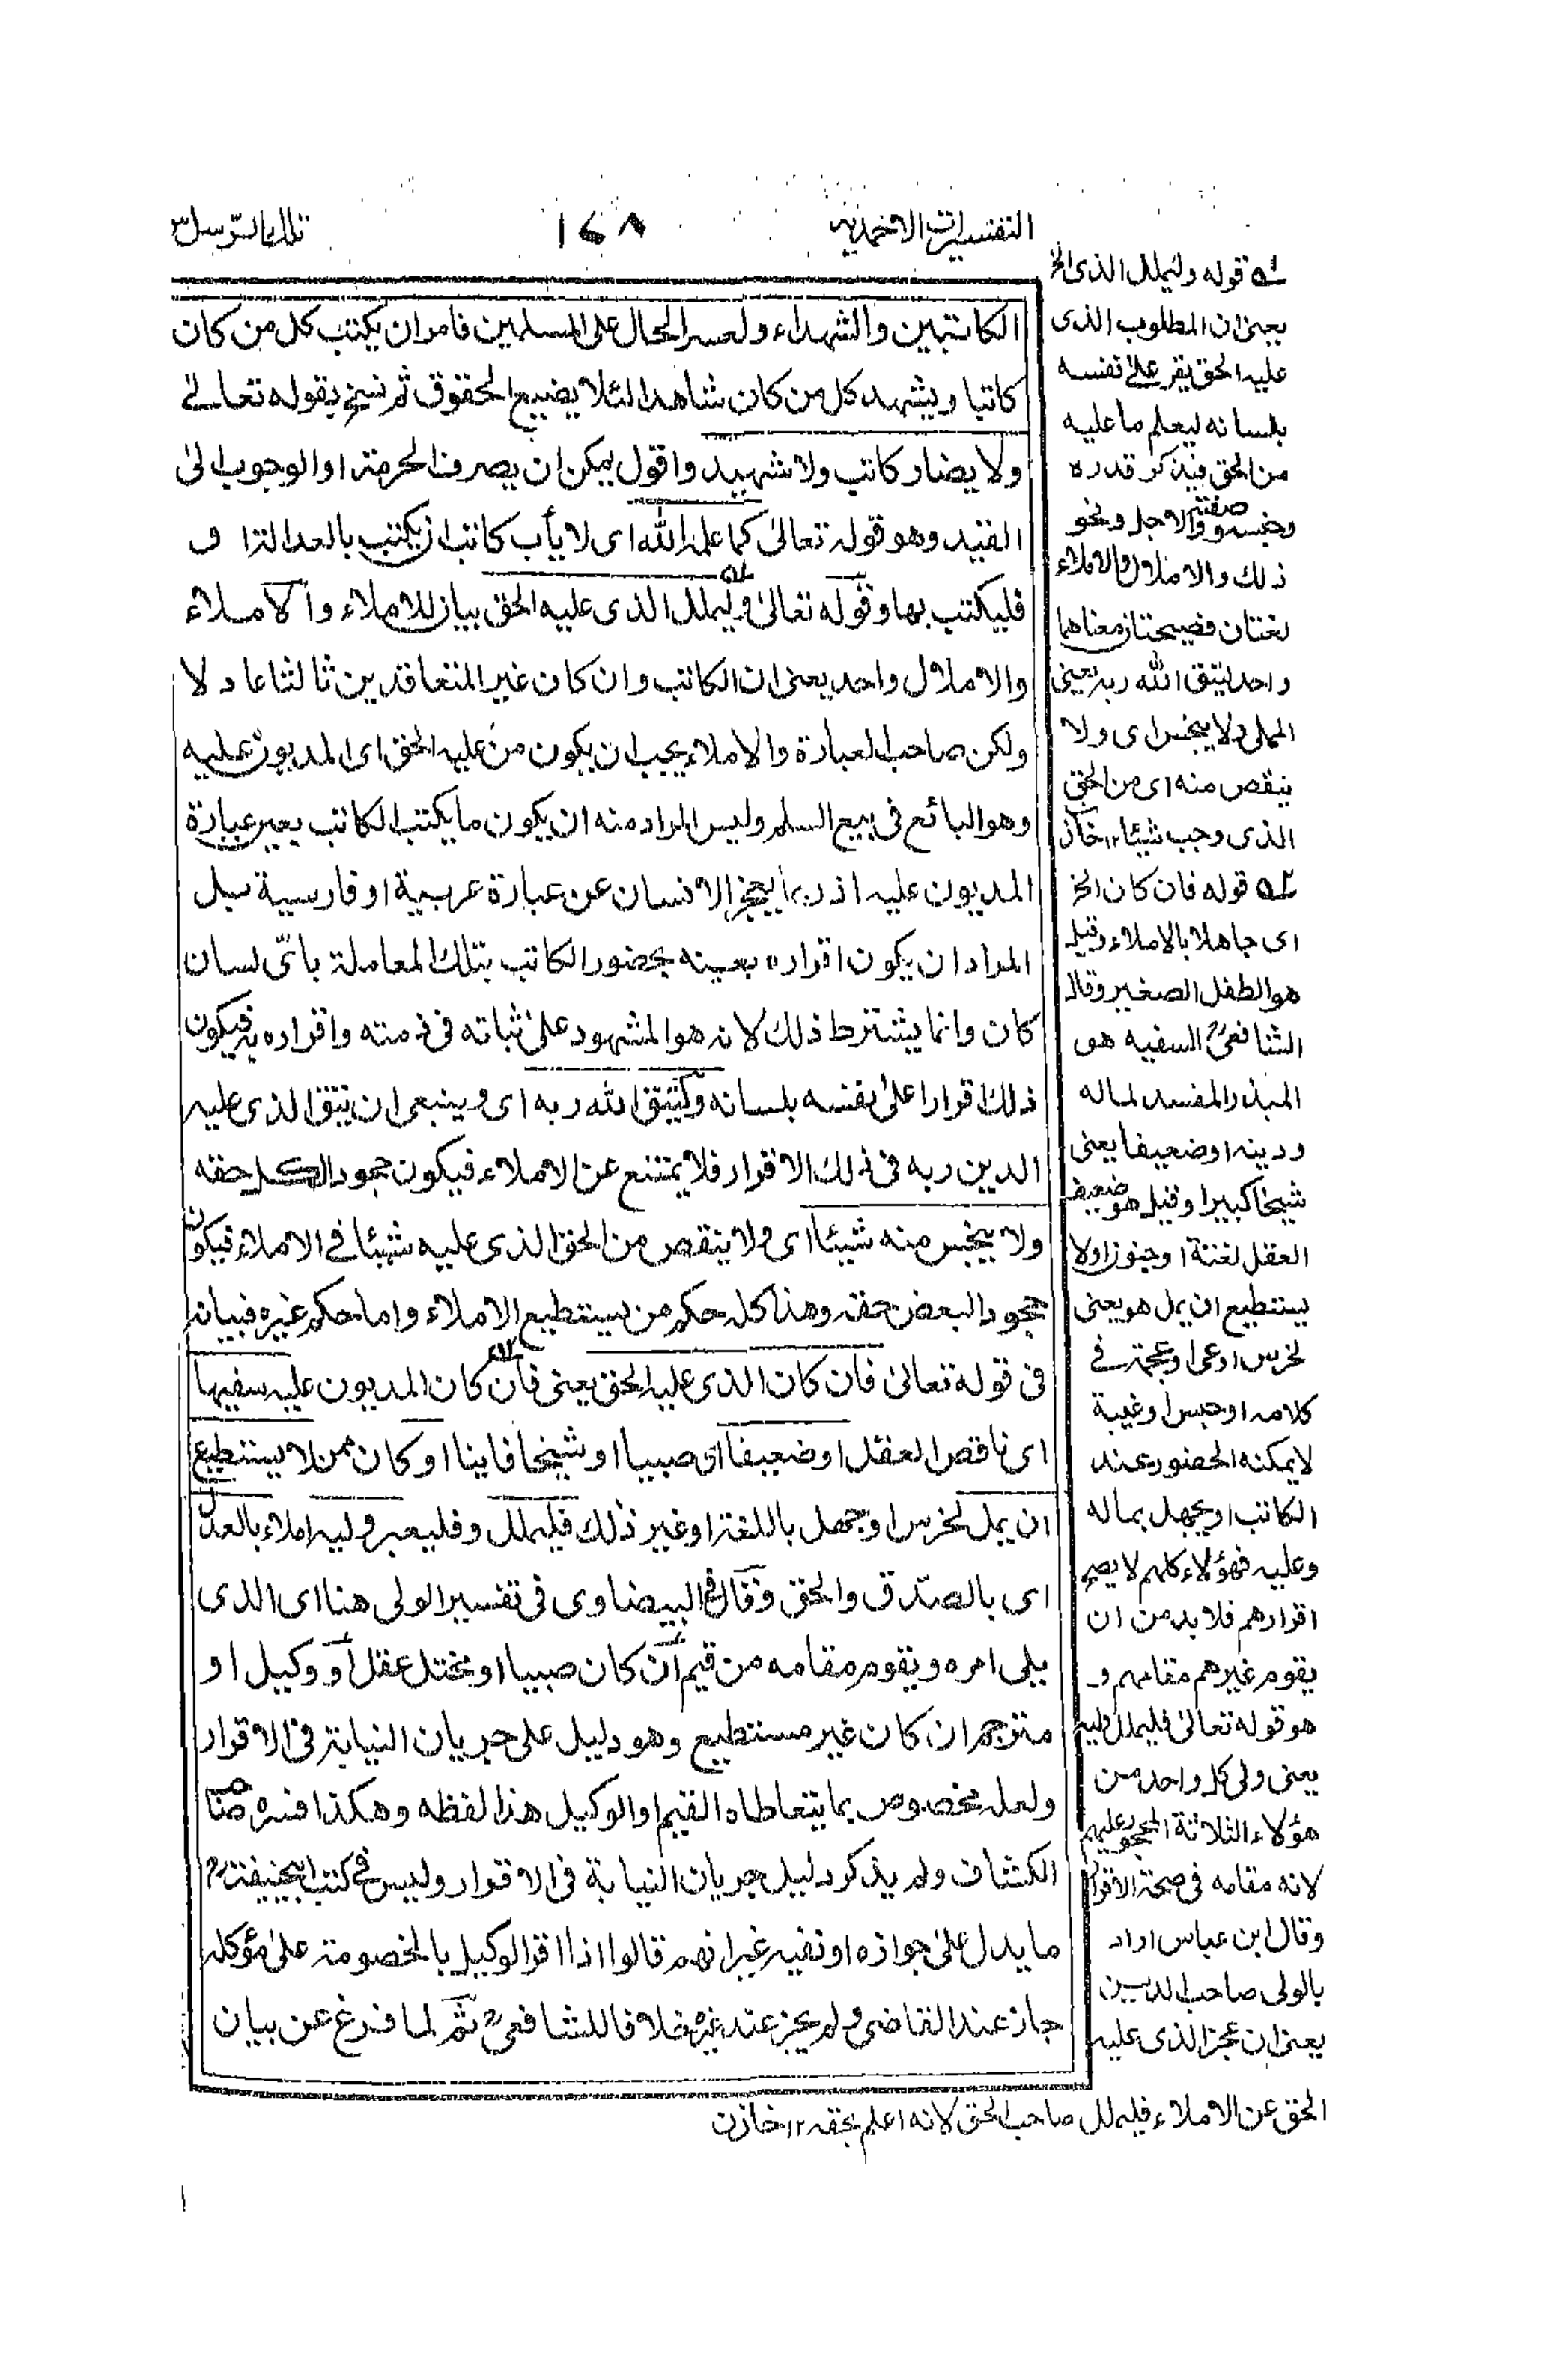 التفسيرات الاحمدية
١٧٨
تلك الرسل ٣
الكاتبين والشهداء ولعسر الحال على المسلمين فامر ان يكتب كل من كان
كاتبا ويشهد كل من كان شاهدا لئلا يضيع الحقوق ثم نسخ بقوله تعالى
ولا يضار كاتب ولا شهيد واقول يمكن ان يصرف الحرمة او الوجوب الى
القيد وهو قوله تعالى كما علمه الله اى لا يأب كاتب ان يكتب بالعدالة او
فليكتب بها وقوله تعالى وليملل الذى عليه الحق بيان للاملاء والاملاء
والاملال واحد يعنى ان الكاتب وان كان غير المتعاقدين ثالثا عادلا
ولكن صاحب العبارة والاملاء يجب ان يكون من عليه الحق اى المديون عليه
وهو البائع فى بيع السلم وليس المراد منه ان يكون ما يكتب الكاتب بعير عبارة
المديون عليه اذ ربما يعجز الانسان عن عبارة عربية او فارسية بل
المراد ان يكون اقراره بعينه بحضور الكاتب بتلك المعاملة باىّ لسان
كان وانما يشترط ذلك لانه هو المشهود على ثباته فى ذمته واقراره به فيكون
ذلك اقرارا على نفسه بلسانه وليتق الله ربه اى وينبغى ان يتق الذى عليه
الدين ربه فى ذلك الاقرار فلا يمتنع عن الاملاء فيكون جحود الكل حقه
ولا يبخس منه شيئا اى ولا ينقص من الحق الذى عليه شيئا فى الاملاء فيكون
جحود البعض حقه وهذا كله حكم من يستطيع الاملاء واما حكم غيره فبيانه
فى قوله تعالى فان كان الذى عليه الحق يعنى فان كان المديون عليه سفيها
اى ناقص العقل او ضعيفا اى صبيا او شيخا فانيا او كان ممن لا يستطيع
ان يمل لخرس او جهل باللغة او غير ذلك فليملل وفليعبر وليه املاء بالعدل
اى بالصدق والحق وقال البيضاوى فى تفسير الولى هنا اى الذى
يلى امره ويقوم مقامه من قيم ان كان صبيا او مختل عقل او وكيل او
مترجم ان كان غير مستطيع وهو دليل على جريان النيابة فى الاقرار
ولعله مخصوص بما يتعاطاه القيم او الوكيل هذا لفظه وهكذا فسره صاحب
الكشاف ولم يذكر دليل جريان النيابة فى الاقرار وليس فى كتب ابيحنيفة رح
ما يدل على جوازه او نفيه غير انهم قالوا اذا اقر الوكيل بالخصومة على مؤكله
جاز عند القاضى ولم يجز عند غيره خلافا للشافعى رح ثم لما فرغ عن بيان
له قوله وليملل الذى الخ
يعنى ان المطلوب الذى
عليه الحق يقر على نفسه
بلسانه ليعلم ما عليه
من الحق فيذكر قدره
وجنسه وصفته والاجل ونحو
ذلك والاملال والاملاء
لغتان فصيحتان معناهما
واحد ليتق الله ربه يعنى
المملى ولا يبخس اى ولا
ينقص منه اى من الحق
الذى وجب شيئا ١٢ خازن
له قوله فان كان الخ
اى جاهلا بالاملاء وقيل
هو الطفل الصغير وقال
الشافعى رح السفيه هو
المبذر المفسد لماله
ودينه او ضعيفا يعنى
شيخا كبيرا وقيل هو ضعيف
العقل لعتة او جنون او لا
يستطيع ان يمل هو يعنى
لخرس او عى او عجمة فى
كلامه او حبس او غيبة
لا يمكنه الحضور عند
الكاتب او يجهل بماله
وعليه فهؤلاء كلهم لا يصح
اقرارهم فلا بد من ان
يقوم غيرهم مقامهم و
هو قوله تعالى فليملل وليه
يعنى ولى كل واحد من
هؤلاء الثلاثة المحجور عليهم
لانه مقامه فى صحة الاقرار
وقال ابن عباس اراد
بالولى صاحب الدين
يعنى ان عجز الذى عليه
الحق عن الاملاء فليملل صاحب الحق لانه اعلم بحقه ١٢ خازن